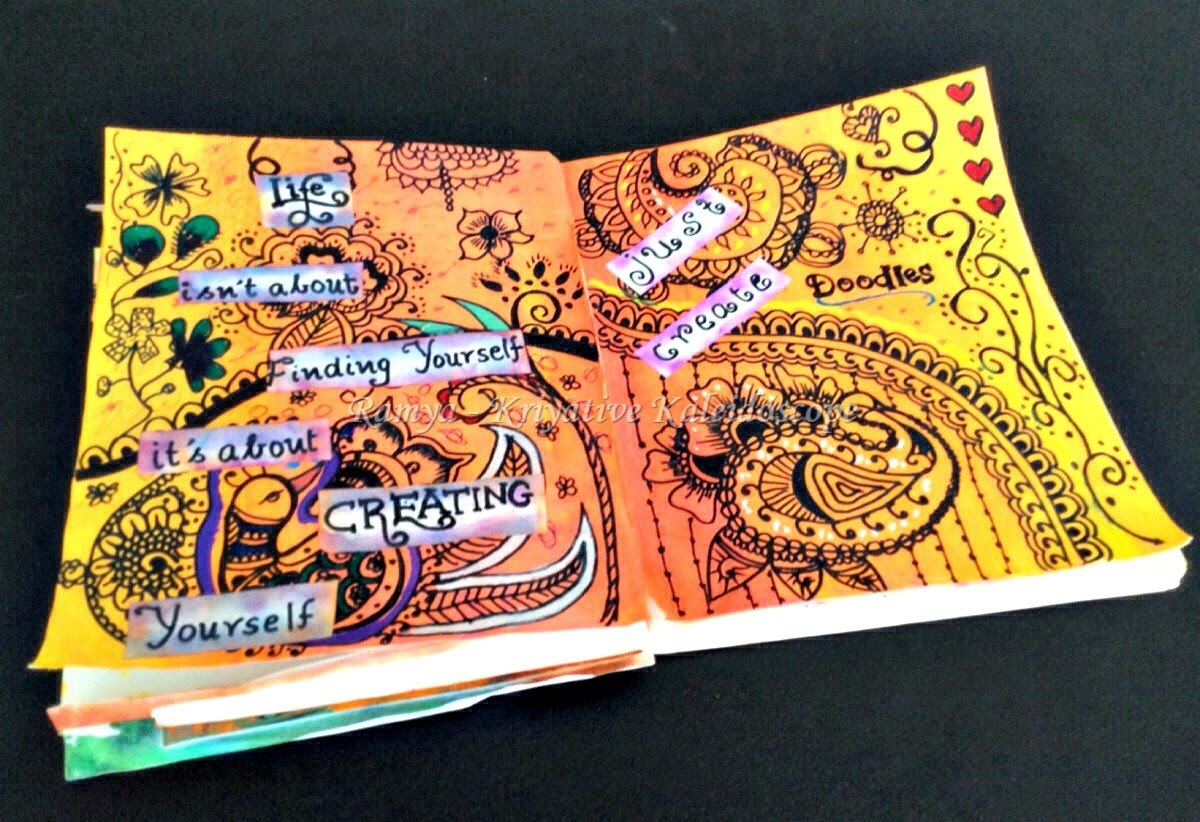 Life
isn't about
Finding Yourself
it's about
CREATING
Yourself
Just
create
Doodles
Ramya - Kriyative Kaleidoscope